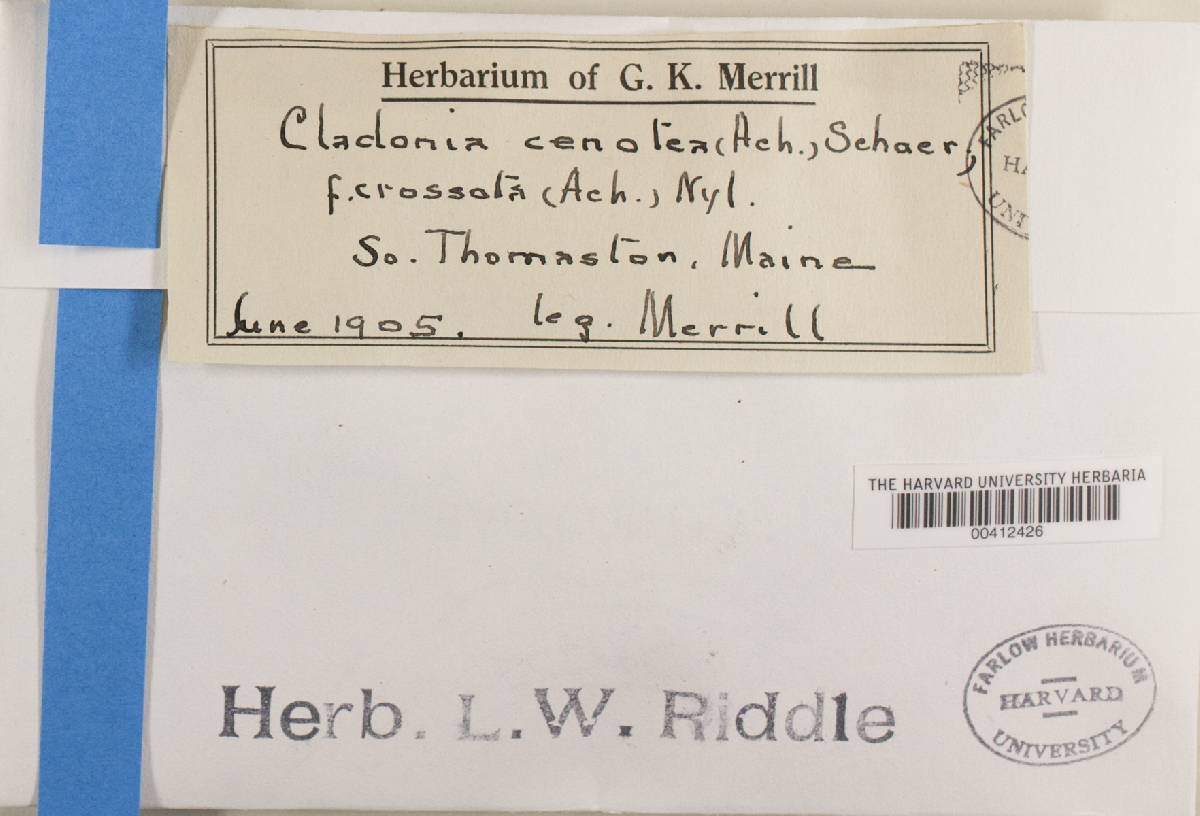 Herbarium of G. K. Merrill
Cladonia cenotea (Ach.), Schaer,
f. crossota (Ach.) Nyl.
So. Thomaston, Maine
June 1905. leg. Merrill
FARLO
HA
UNI
THE HARVARD UNIVERSITY HERBARIA
00412426
Herb. L. W. Riddle
FARLOW HERBARIUM
HARVARD
UNIVERSITY